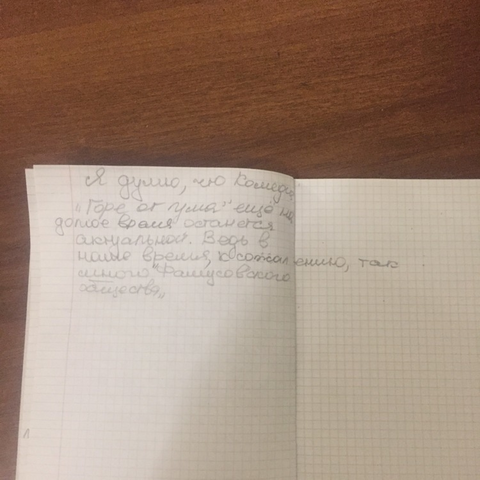 Я думаю, что комедия
„Горе от ума" ещё на
долгое время останется
актуальной. Ведь в
наше время, к сожалению, так
много "Фамусовского
общества„